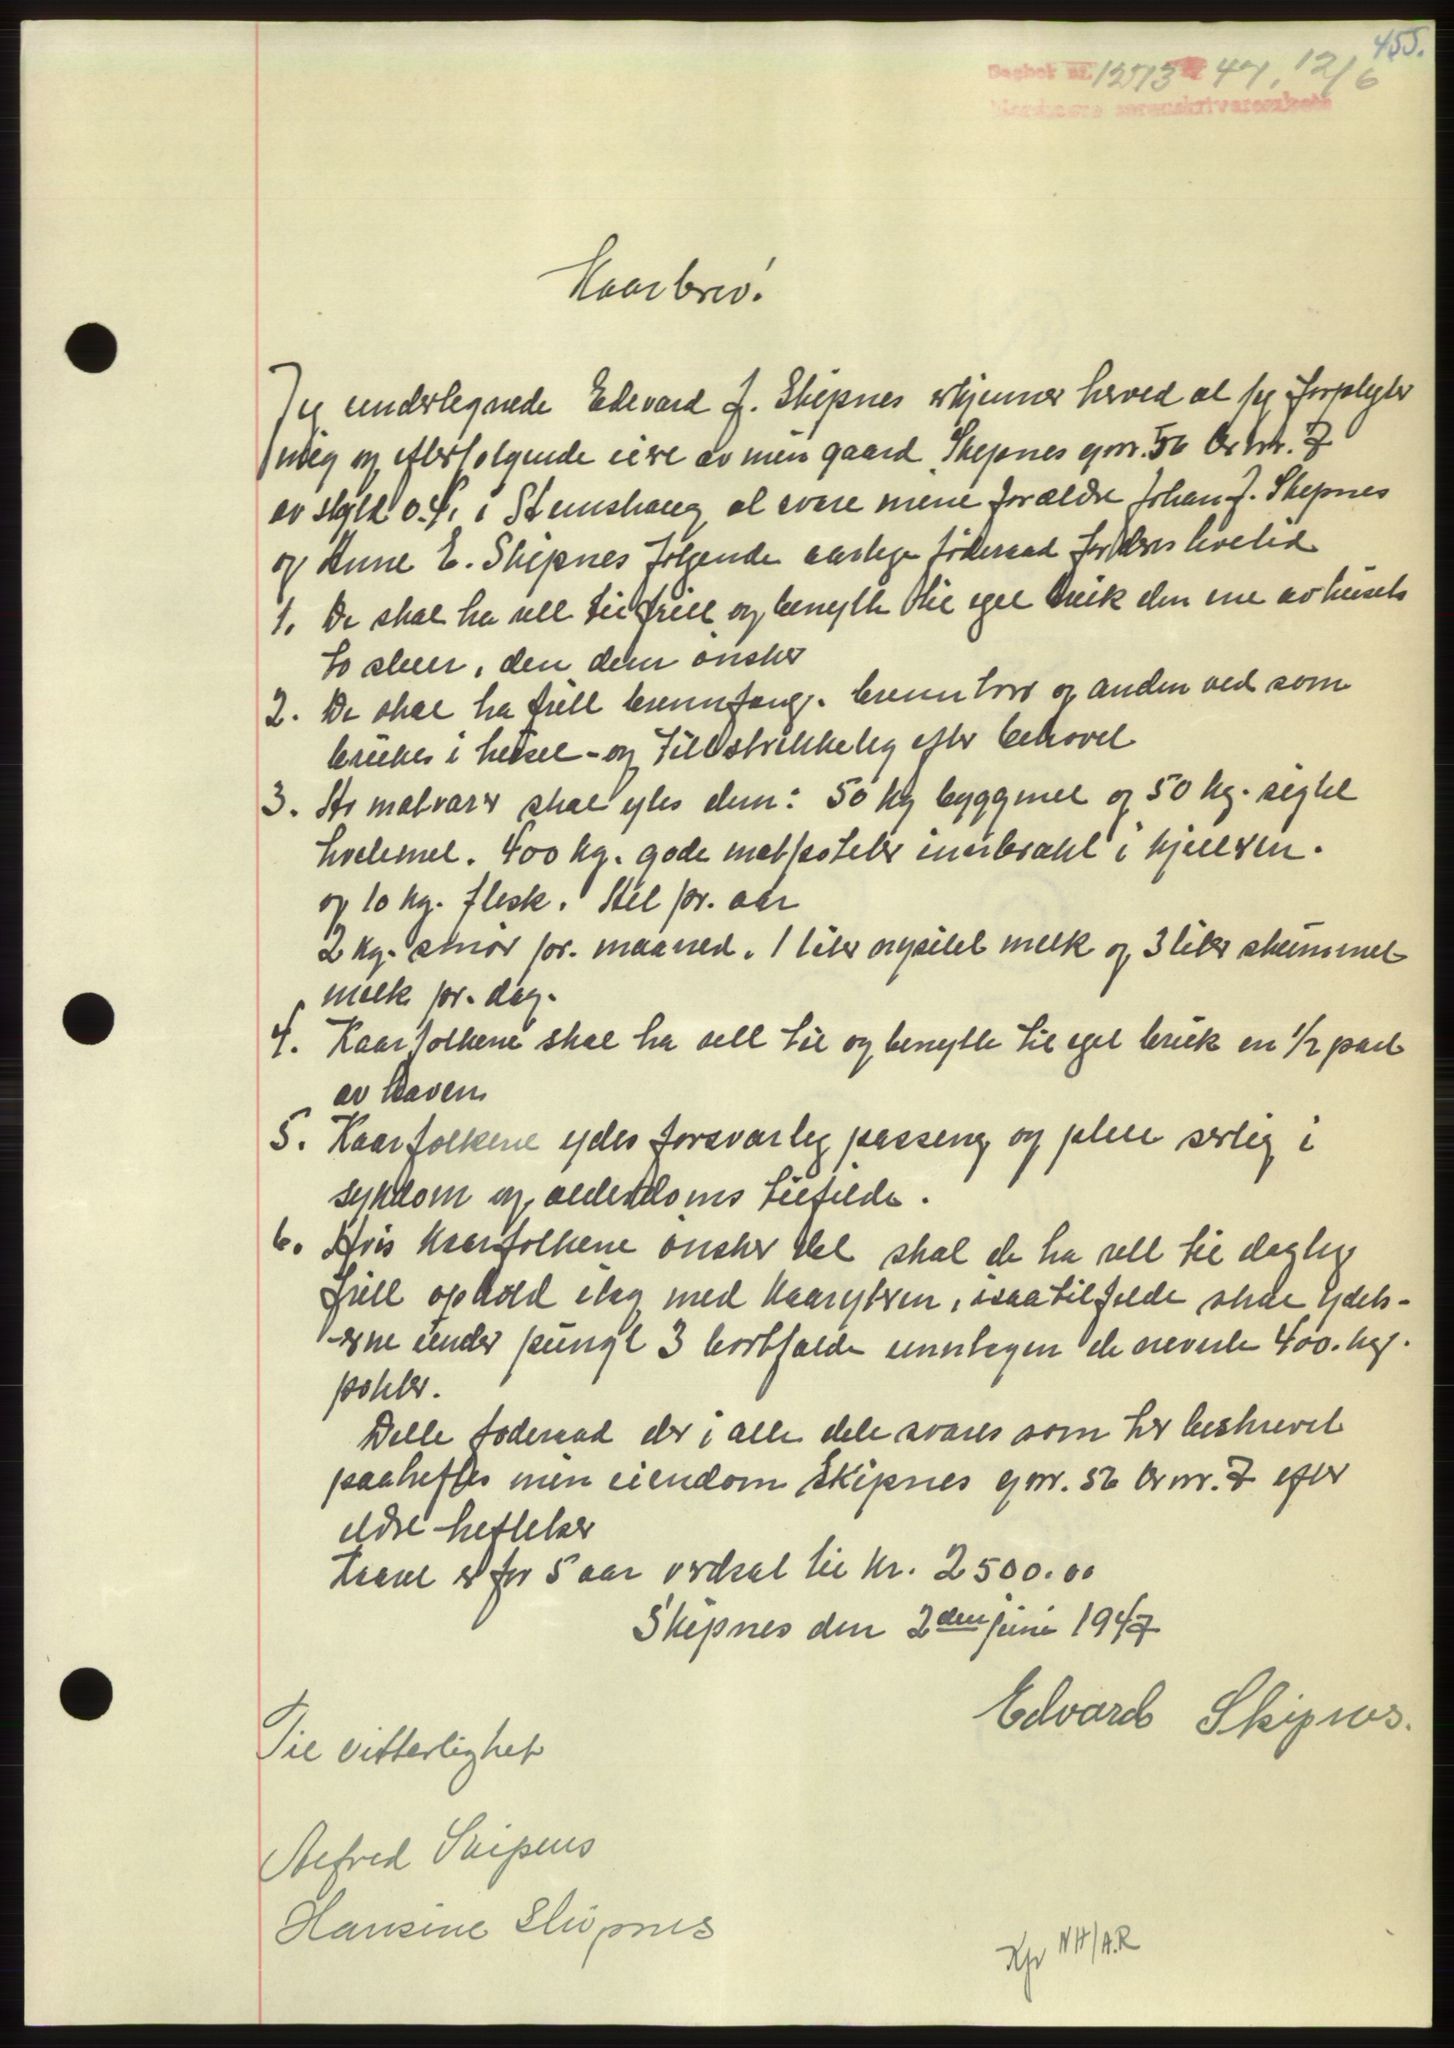 455.
Dagbok nr. 1273 47. 12/6
Nordmøre sorenskriverembete
Kaarbrev!
Jeg undertegnede Edevard J. Skipnes erkjenner herved at jeg forplegter
meg og efterfølgende eiere av min gaard Skipnes gnr. 56 br nr. 7
av skyld 0.4. i Stemshaug at svare mine forældre Johan J. Skipnes
og Anne E. Skipnes følgende aarlege føderaad for deres livetid
1. De skal ha rett til fritt og benytte til eget bruk den ene av husets
to stuer, den dem ønsker
2. De skal ha fritt brennfang. brenntorv og anden ved som
brukes i huset - og tillstrekkeleg efter behovet
3. Av matvarer skal ytes dem: 50 kg byggmel og 50 kg. sigtet
hvetemel. 400 kg. gode matpoteter innbragt i kjelleren.
og 10 kg. flesk. Alt pr. aar
2 kg. smør pr. maaned. 1 liter nysilet melk og 3 liter skummet
melk pr. dag.
4. Kaarfolkene skal ha rett til og benytte til eget bruk en 1/2 part
av haven
5. Kaarfolkene ydes forsvarleg passeng og pleie serleg i
sykdom og alderdoms tilfelde.
6. Hvis kaarfolkene ønsker det skal de ha rett til dagleg
fritt ophold ilag med kaaryteren, isaatilfelde skal ydels-
-erne under pungt 3 bortfalde unntagen de nevnte 400. kg.
poteter.
Dette føderaad der i alle dele svares som her beskrevet
paaheftes min eiendom Skipnes gnr. 56 br nr. 7 efter
eldre heftelser
Kaaret er for 5 aar verdsat til kr. 2500.00
Skipnes den 2den juni 1947
Edvard Skipnes.
Til vitterlighet
Alfred Skipnes
Hansine Skipnes
Kfr NH/A.R